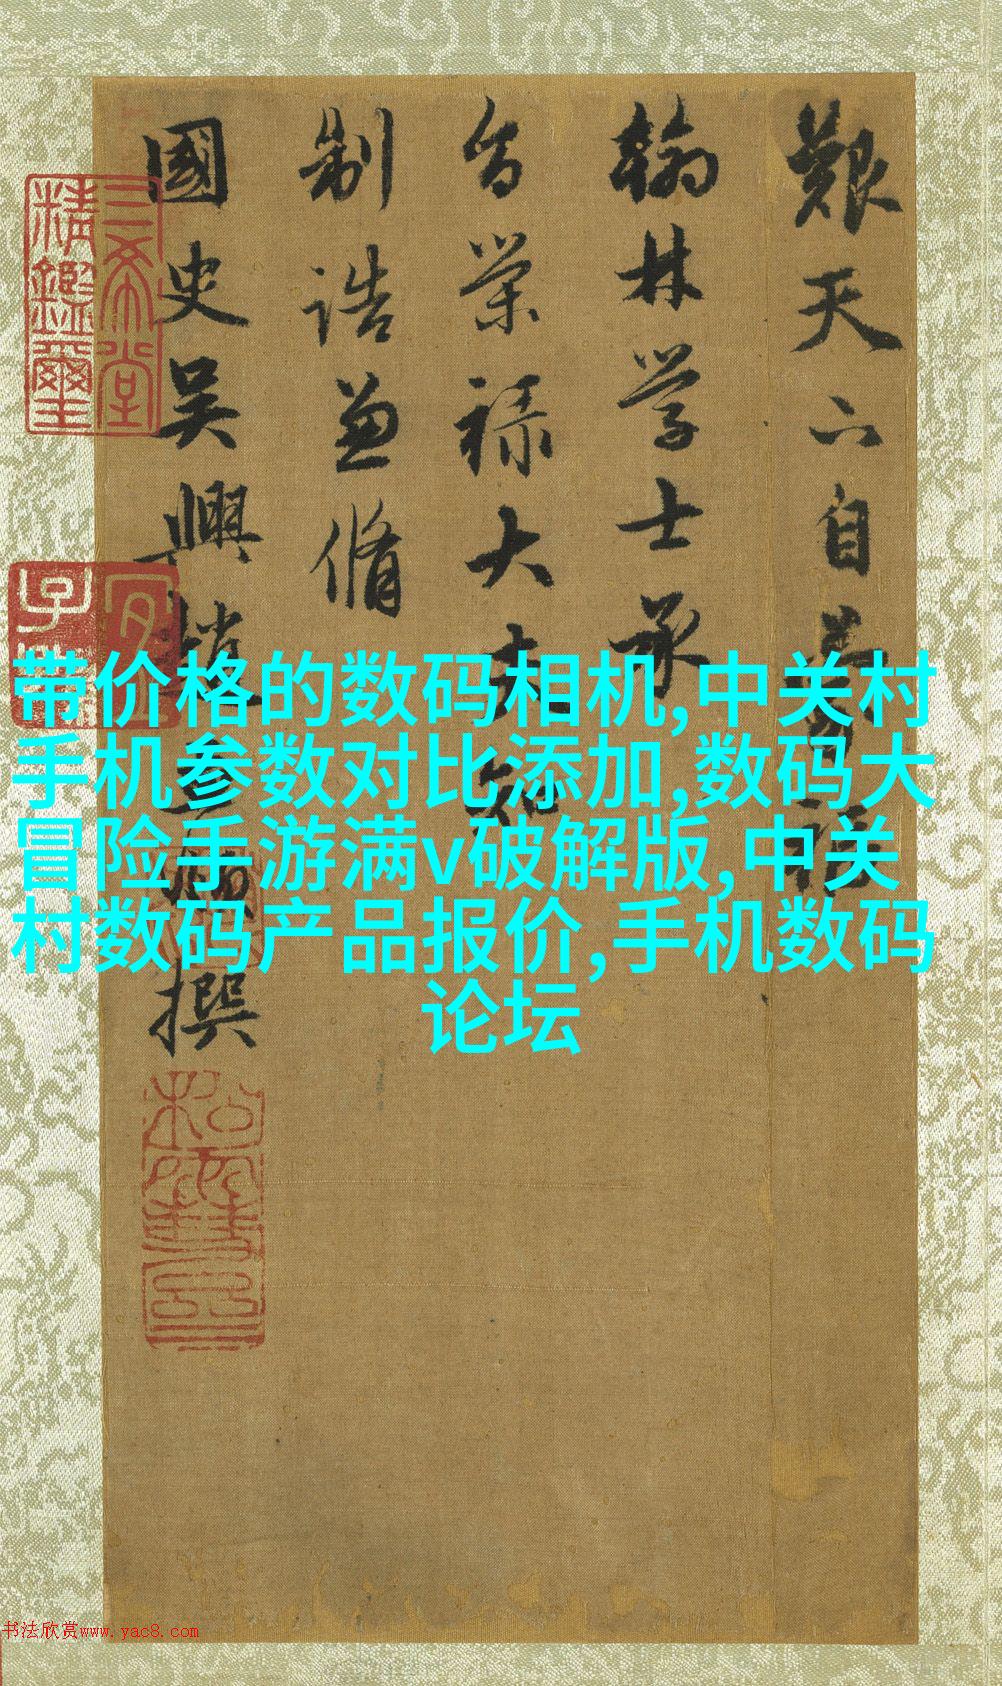 艱天六自
翰林学士承
榮祿大夫知
制誥兼脩
國史吴興趙
撰
三希堂
精鑒璽
宜
子
带价格的数码相机,中关村
手机参数对比添加,数码大
冒险手游满v破解版,中关
村数码产品报价,手机数码
论坛
书法欣赏www.yac8.com